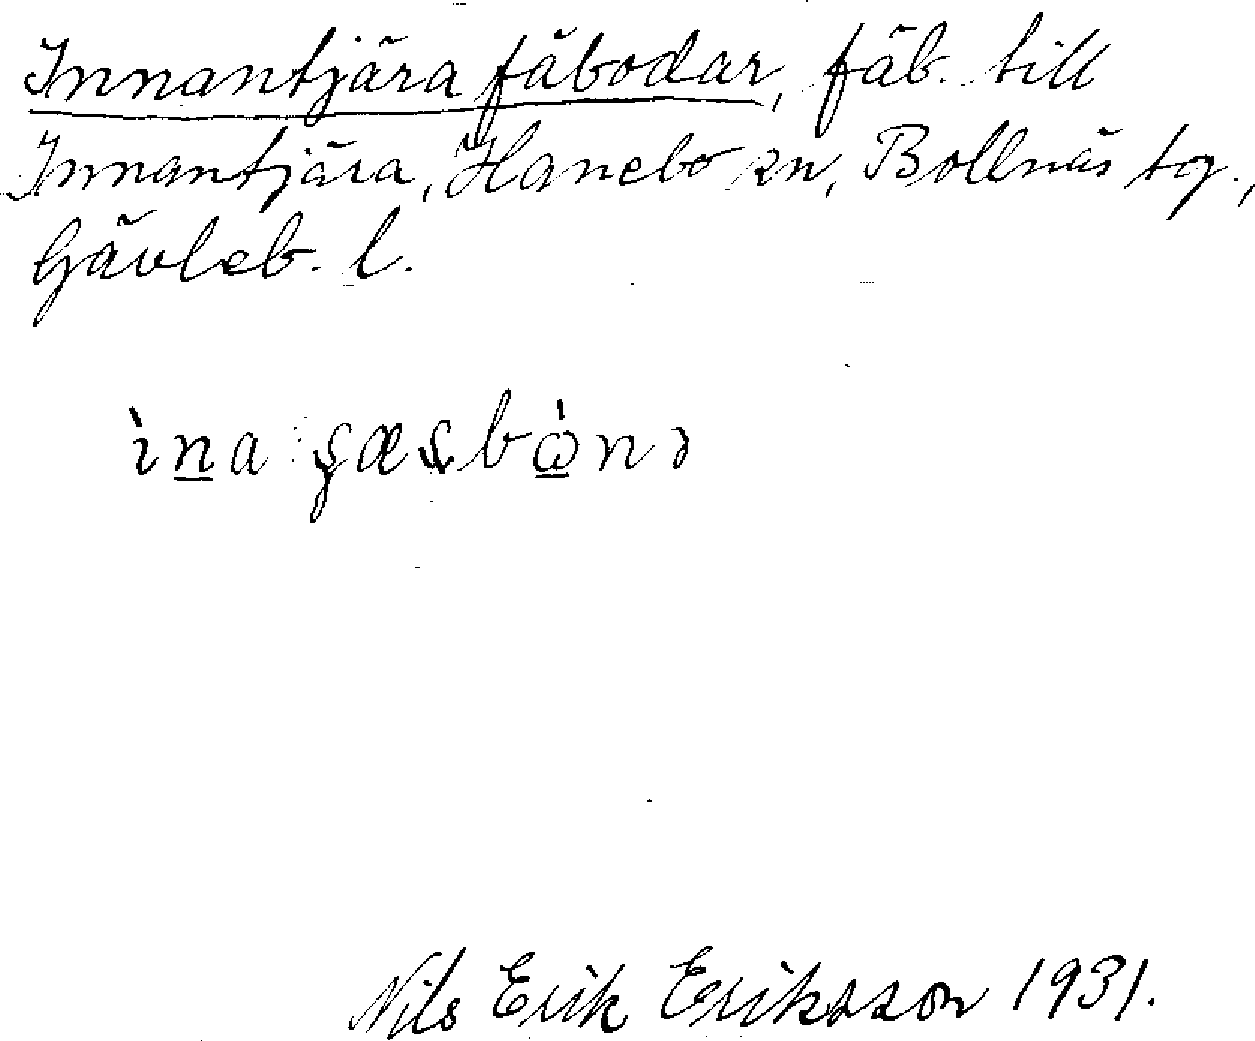 Innantjära fäbodar, fäb. till
Innantjära, Hanebo sn, Bollnäs tg.,
Gävleb. l.
Nils Erik Eriksson 1931.